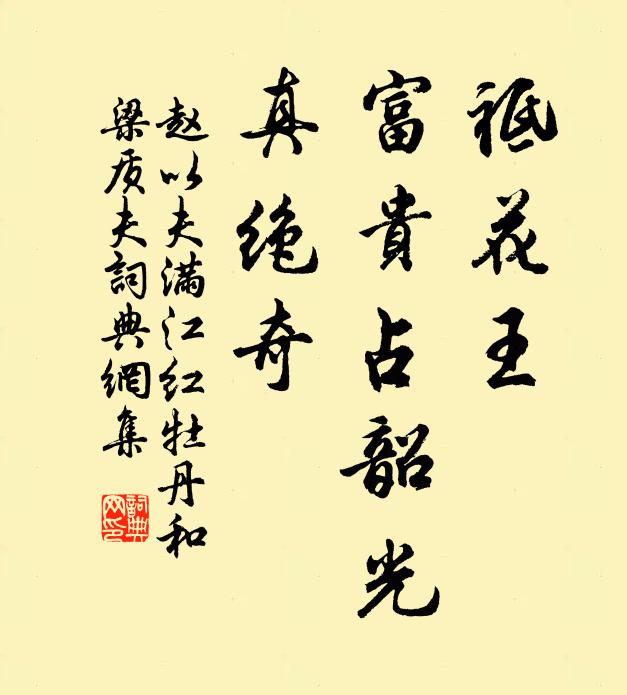 祗花王
富貴占韶光
真绝奇
赵以夫满江红牡丹和
梁质夫詞典網集
詞典
网印